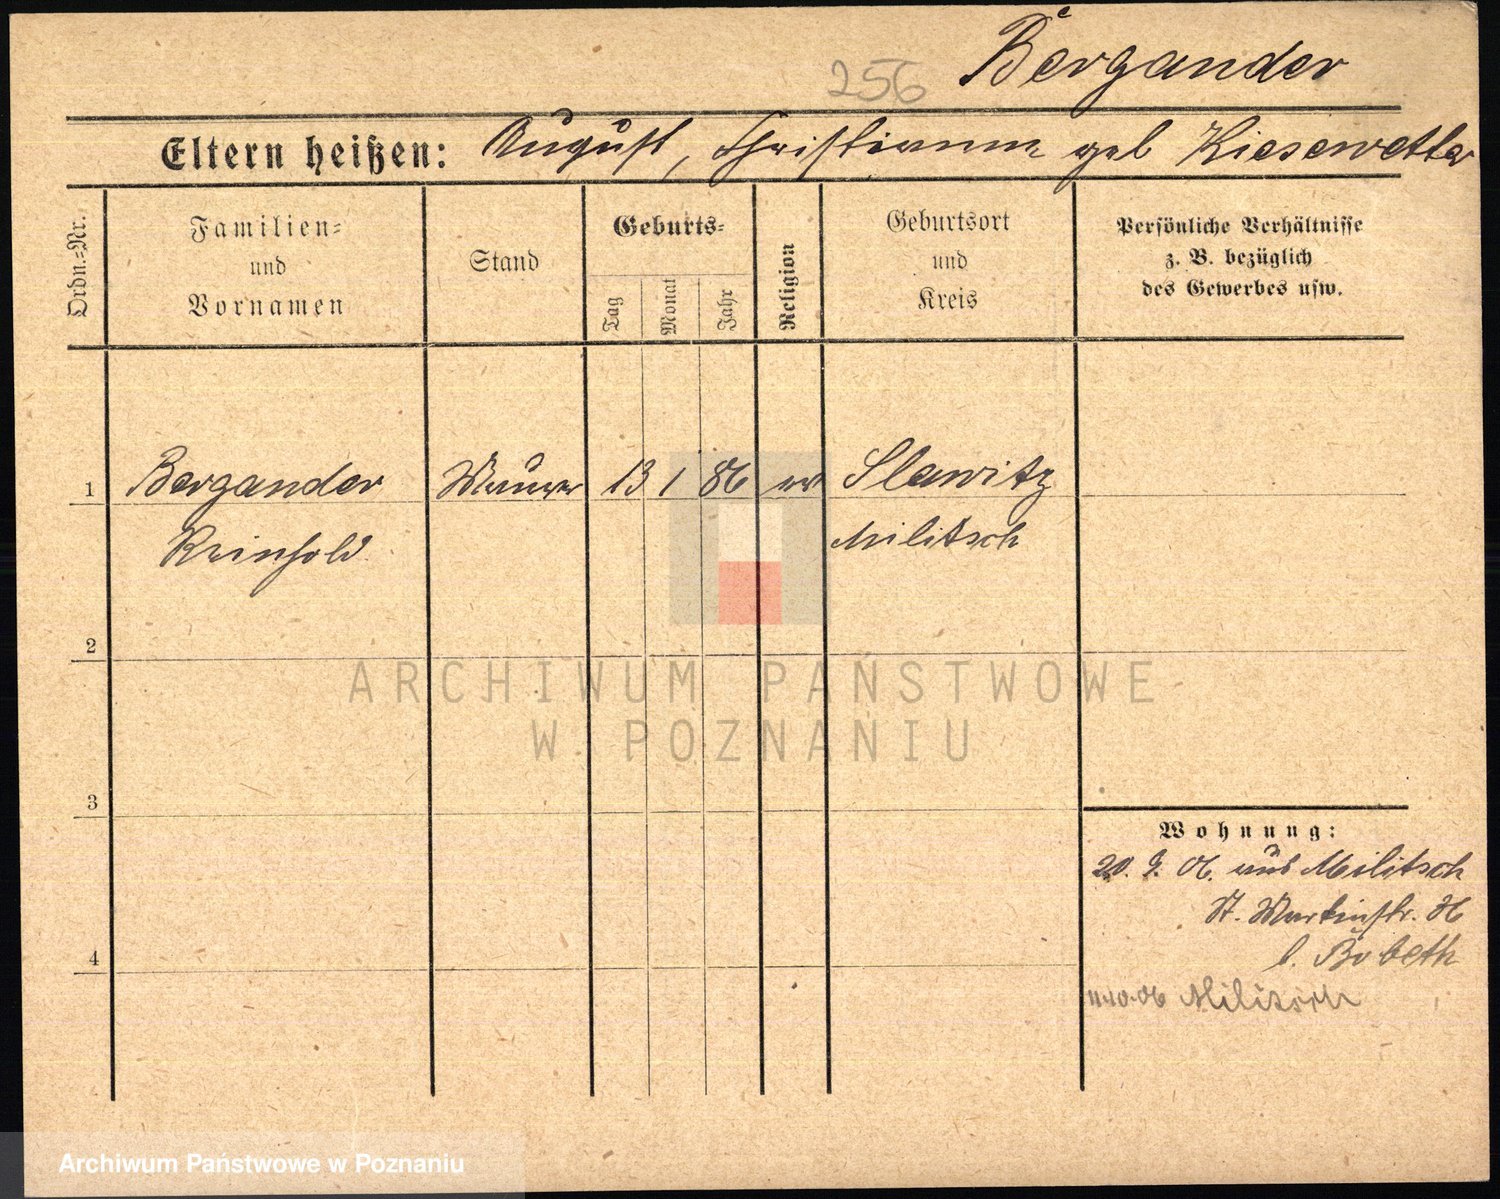 Bergander
256
Eltern heißen: August, Christianne geb Kiesewetter
Ordn.-Nr.
Familien-
und
Vornamen
Stand
Geburts-
Tag
Monat
Jahr
Religion
Geburtsort
und
Kreis
Persönliche Verhältnisse
z. B. bezüglich
des Gewerbes usw.
1 Bergander Maurer 13 1 86 ev Slawitz
Reinhold Militsch
2
3
4
Wohnung:
20. 9. 06. aus Militsch
St. Martinstr. 36
b. Bobeth
11.10.06 Militsch
ARCHIWUM PAŃSTWOWE
W POZNANIU
Archiwum Państwowe w Poznaniu